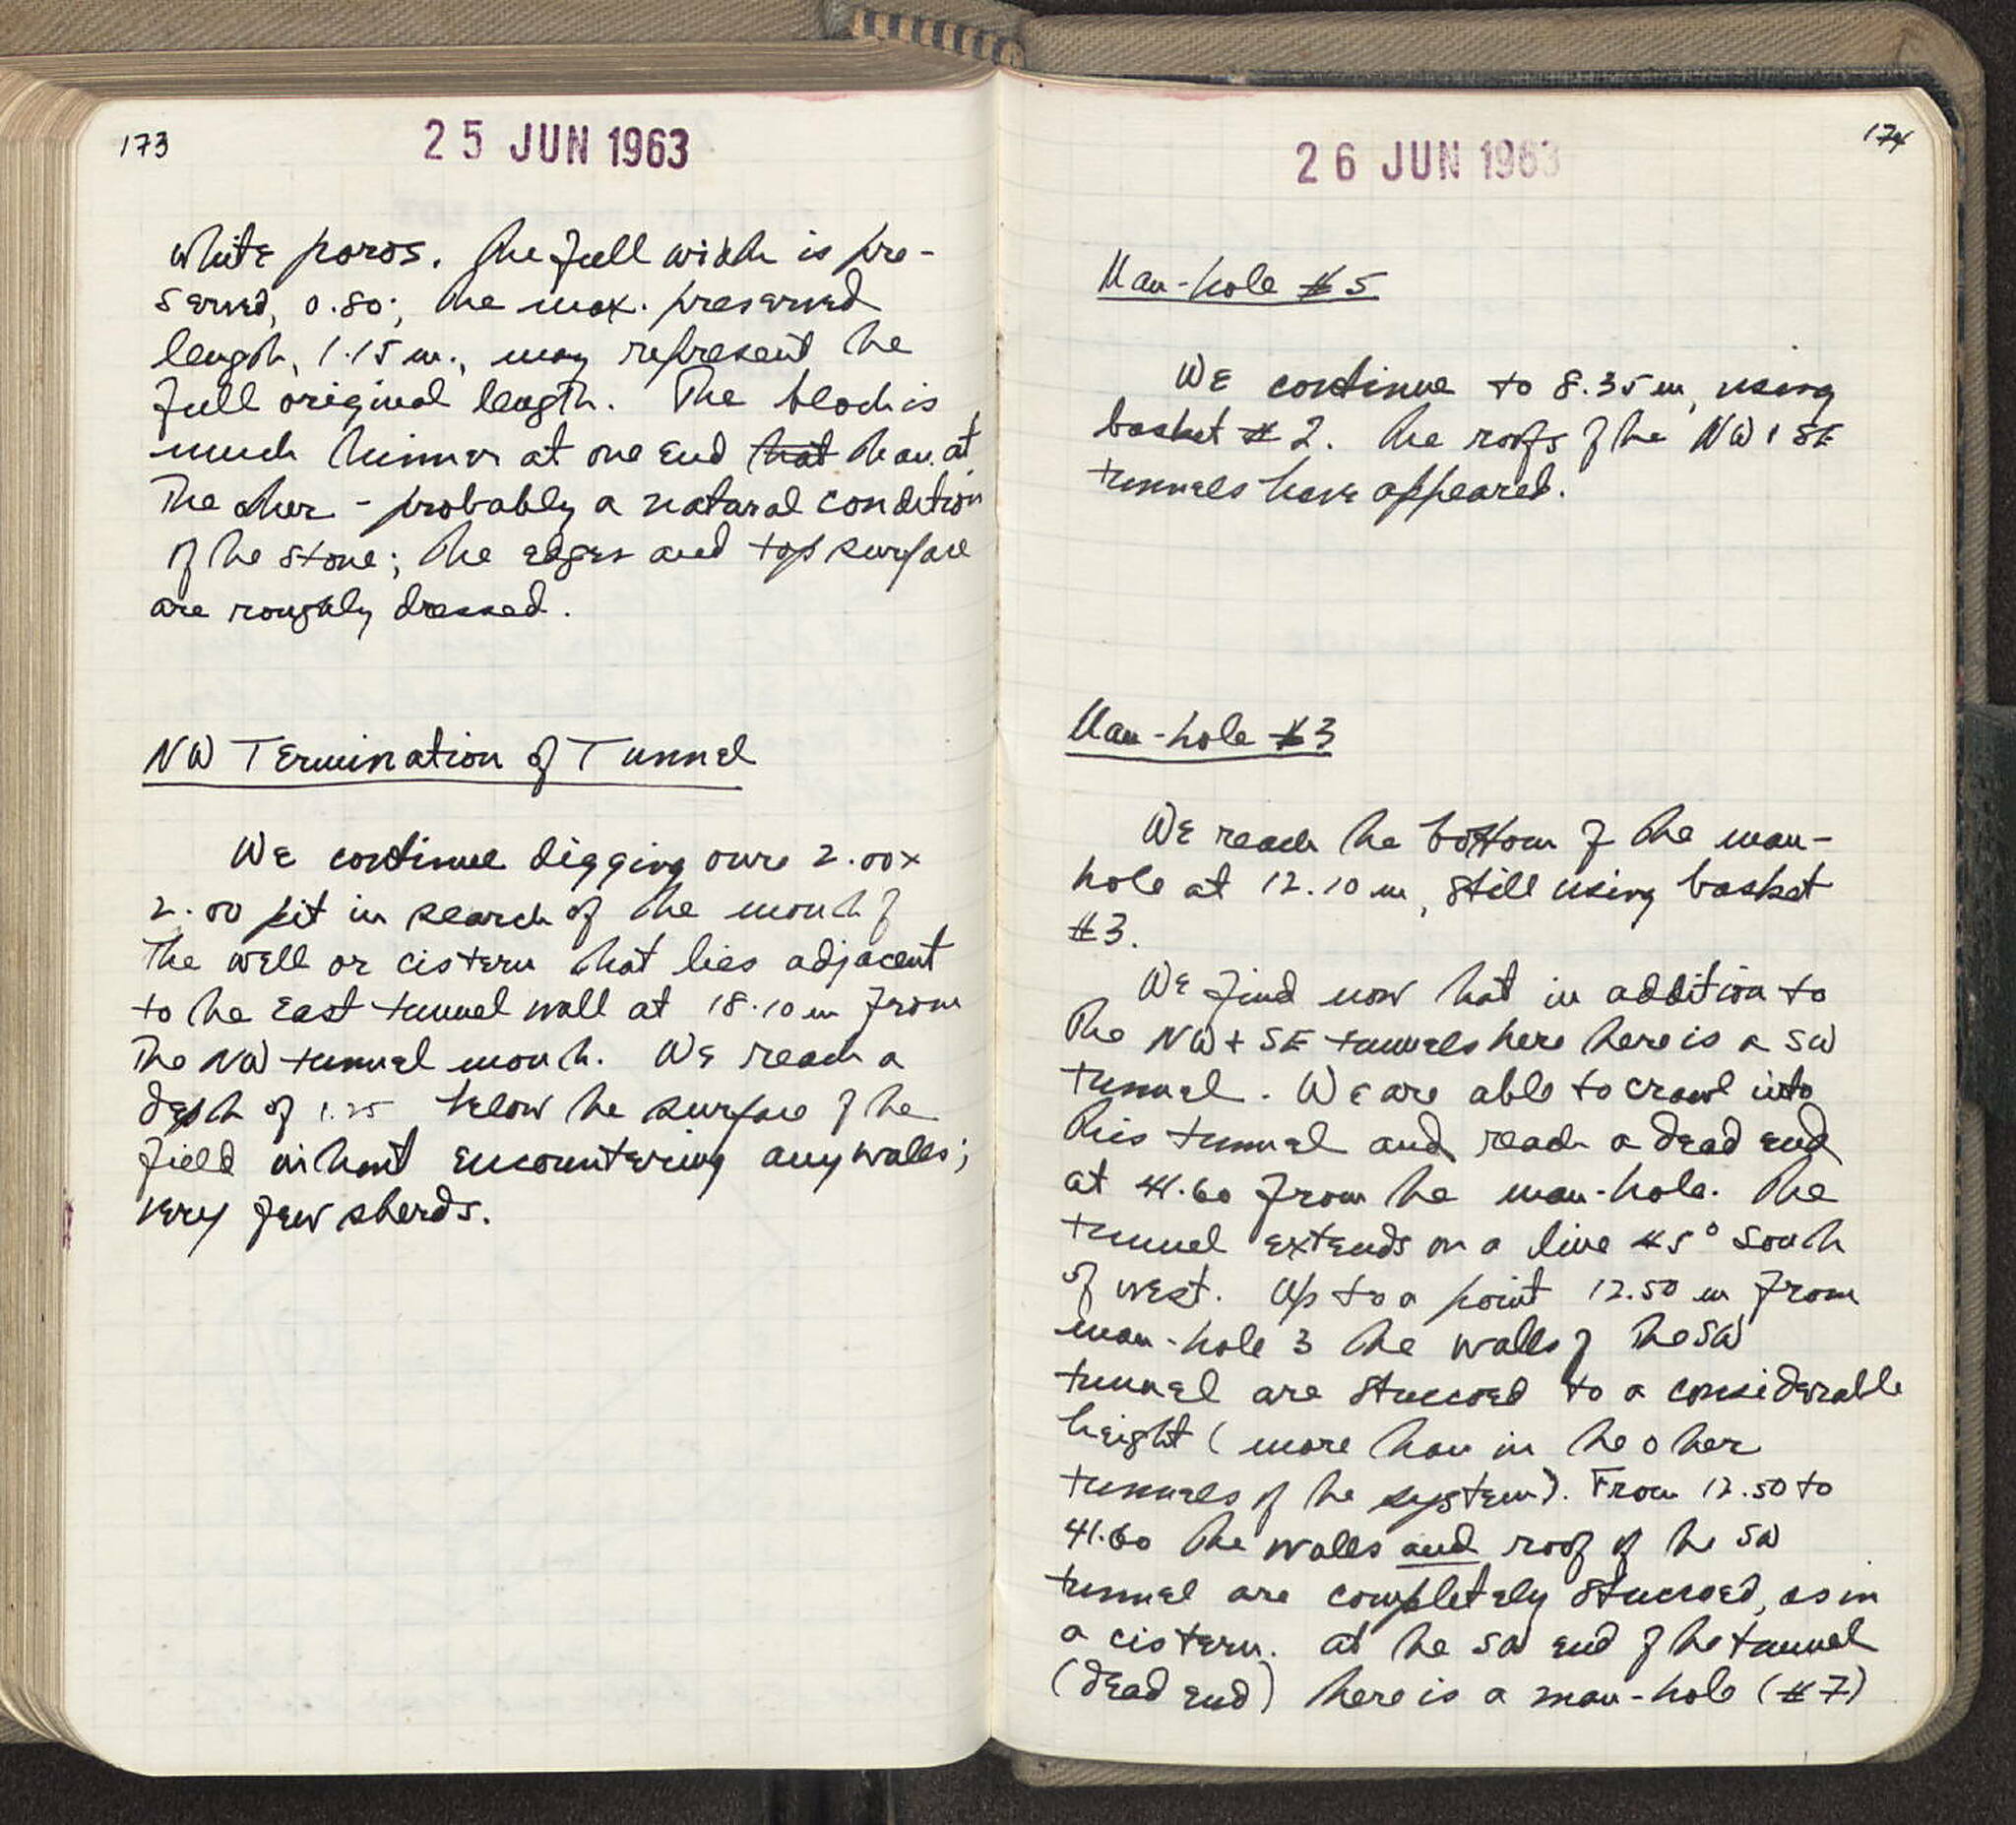 173
25 JUN 1963
white poros. The full width is pre-
served, 0.80; the max. preserved
length, 1.15 m., may represent the
full original length. The block is
much thinner at one end that than at
the other - probably a natural condition
of the stone; the edges and top surface
are roughly dressed.
NW Termination of Tunnel
We continue digging ours 2.00x
2.00 pit in search of the mouth of
the well or cistern that lies adjacent
to the East tunnel wall at 18.10 m from
the NW tunnel mouth. We reach a
depth of 1.25 below the surface of the
field without encountering any walls;
very few sherds.
174
26 JUN 1963
Man-hole #5
We continue to 8.35 m, using
basket # 2. The roofs of the NW + SE
tunnels have appeared.
Man-hole #3
We reach the bottom of the man-
hole at 12.10 m, still using basket
#3.
We find now that in addition to
the NW + SE tunnels here there is a SW
tunnel. We are able to crawl into
this tunnel and reach a dead end
at 41.60 from the man-hole. The
tunnel extends on a line 45° South
of west. Up to a point 12.50 m from
man-hole 3 the walls of the SW
tunnel are stuccoed to a considerable
height (more than in the other
tunnels of the system). From 12.50 to
41.60 the walls and roof of the SW
tunnel are completely stuccoed, as in
a cistern. At the SW end of the tunnel
(dead end) there is a man-hole (#7)